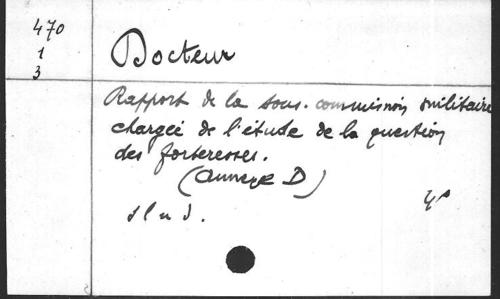 470
1
3
Docteur
Rapport de la sous-commission militaire
chargée de l'étude de la question
des forteresses.
(Annexe D)
s l n d.
4°